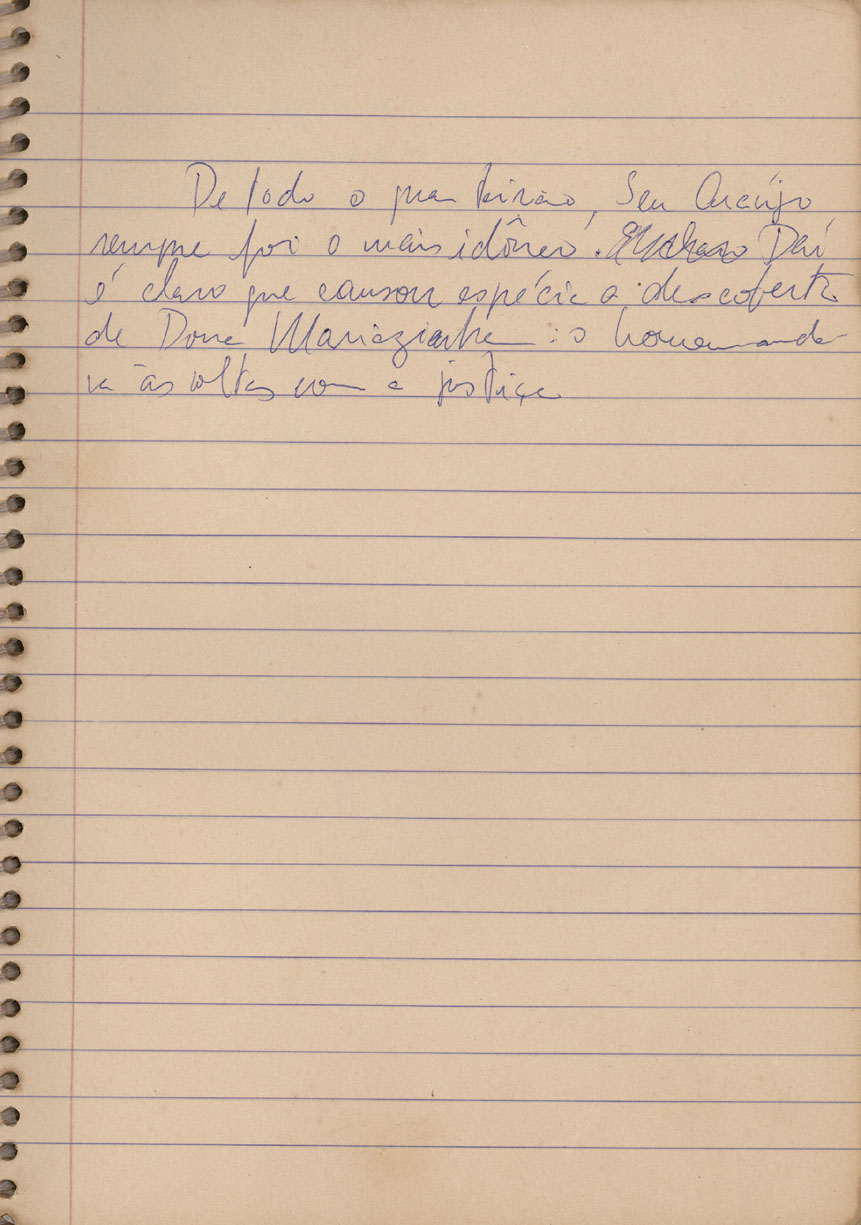 De todo o quarteirão, Seu Araújo
sempre foi o mais idôneo. Daí
é claro que causou espécie a descoberta
de Dona Mariazinha: o homem anda-
va às voltas com a justiça